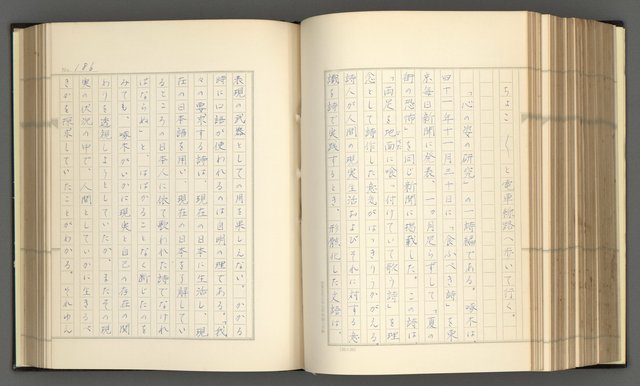 ちょこ〱と電車線路へ歩いて行く。
「心の姿の研究」の一詩編である。啄木は、
四十一年十一月三十日に「食ふべき詩」を東
京毎日新聞に発表、一ヶ月足らずして「夏の
街の恐怖」を同じ新聞に掲載した。この詩は
「両足を地面に喰っ付けていて歌う詩」を理
念として詩作した意気がはっきりうかがえる。
詩人が人間の現実生活およびそれに対する意
識を詩で実践するとき、形骸化した文語は、
No. 186
表現の武器としての用を果しえない。かかる
詩に口語が使われるのは自明の理である。「我
々の要求する詩は、現在の日本に生活し、現
在の日本語を用い、現在の日本を了解してい
るところの日本人に依て歌われた詩でなけれ
ばならぬ」と、はばかることなく断じたのを
みても、啄木がいかに現実と自己の存在の関
わりを透視しようとしていたか、またその現
実の状況の中で、人間としていかに生きるべ
きかを探求していたことがわかる。それゆえん